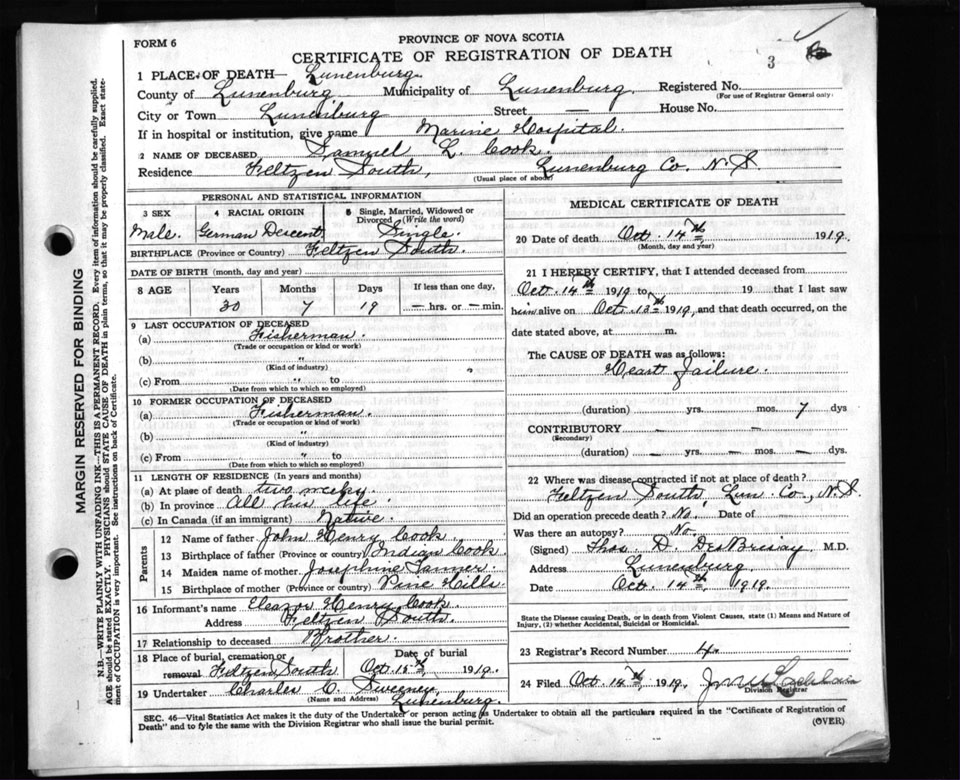 FORM 6
PROVINCE OF NOVA SCOTIA
CERTIFICATE OF REGISTRATION OF DEATH
3
1 PLACE OF DEATH— Lunenburg.
County of Lunenburg Municipality of Lunenburg. Registered No.
(For use of Registrar General only.)
City or Town Lunenburg Street — House No.
If in hospital or institution, give name Marine Hospital.
2 NAME OF DECEASED Samuel L. Cook.
Residence Feltzen South, Lunenburg Co. N.S.
(Usual place of abode)
PERSONAL AND STATISTICAL INFORMATION
3 SEX
Male.
4 RACIAL ORIGIN
German Descent
5 Single, Married, Widowed or
Divorced (Write the word)
Single.
BIRTHPLACE (Province or Country) Feltzen South.
DATE OF BIRTH (month, day and year)
8 AGE Years Months Days If less than one day,
30 7 19 — hrs. or — min.
9 LAST OCCUPATION OF DECEASED
(a) Fisherman.
(Trade or occupation or kind or work)
(b) "
(Kind of industry)
(c) From " to
(Date from which to which so employed)
10 FORMER OCCUPATION OF DECEASED
(a) Fisherman.
(Trade or occupation or kind of work)
(b) "
(Kind of industry)
(c) From " to
(Date from which to which so employed)
11 LENGTH OF RESIDENCE (In years and months)
(a) At place of death two
(b) In province All his life.
(c) In Canada (if an immigrant) Native.
Parents
12 Name of father John Henry Cook
13 Birthplace of father (Province or country) Indian Cook
14 Maiden name of mother Josephine Tanner
15 Birthplace of mother (Province or country) Pine Hills
16 Informant's name Henry Cook.
Address Feltzen South.
17 Relationship to deceased Brother.
18 Place of burial, cremation or removal Feltzen South
Date of burial Oct. 15th, 1919.
19 Undertaker Charles C. Sweeney
(Name and Address) Lunenburg.
MEDICAL CERTIFICATE OF DEATH
20 Date of death Oct. 14th, 1919.
(Month, day and year)
21 I HEREBY CERTIFY, that I attended deceased from
Oct. 14th 1919 to 19 that I last saw
him alive on Oct. 13th 1919, and that death occurred, on the
date stated above, at m.
The CAUSE OF DEATH was as follows:
Heart Failure.
(duration) yrs. mos. 7 dys
CONTRIBUTORY — —
(Secondary)
(duration) — yrs. — mos. — dys.
22 Where was disease contracted if not at place of death?
Feltzen South, Lun. Co., N.S.
Did an operation precede death? No. Date of —
Was there an autopsy? No.
(Signed) Thos. D. DesBrisay. M.D.
Address Lunenburg.
Date Oct. 14th, 1919.
State the Disease causing Death, or in death from Violent Causes, state (1) Means and Nature of
Injury, (2) whether Accidental, Suicidal or Homicidal.
23 Registrar's Record Number 4.
24 Filed Oct. 14th, 1919.
Division Registrar
SEC. 46—Vital Statistics Act makes it the duty of the Undertaker or person acting as Undertaker to obtain all the particulars required in the "Certificate of Registration of
Death" and to fyle the same with the Division Registrar who shall issue the burial permit.
(OVER)
MARGIN RESERVED FOR BINDING
N.B.—WRITE PLAINLY WITH UNFADING INK—THIS IS A PERMANENT RECORD. Every item of information should be carefully supplied.
AGE should be stated EXACTLY. PHYSICIANS should STATE CAUSE OF DEATH in plain terms, so that it may be properly classified. Exact state-
ment of OCCUPATION is very important. See instructions on back of Certificate.